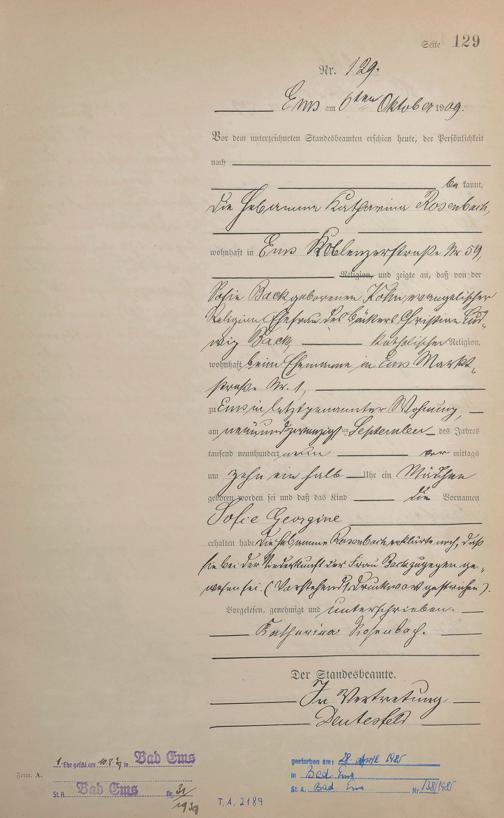 Seite 129
Nr. 129.
Ems am 6ten Oktober 1909.
Vor dem unterzeichneten Standesbeamten erschien heute, der Persönlichkeit
nach
be kannt,
die Hebamme Katharina Rosenbach,
wohnhaft in Ems Koblenzerstraße Nr 59,
Religion, und zeigte an, daß von der
Sofie Back geborenen evangelischer
Religion Ehefrau des Bäckers Christian Lud-
wig Back, katholischer Religion,
wohnhaft beim Ehemanne in Ems Markt-
straße Nr. 1,
zu Ems in letztgenannter Wohnung,
am neunundzwanzigsten September des Jahres
tausend neunhundert neun vor mittags
um zehn ein halb Uhr ein Mädchen
geboren worden sei und daß das Kind die Vornamen
Sofie Georgine
erhalten habe. Die Hebamme Rosenbach erklärte noch, daß
sie bei der Niederkunft der Frau Back zugegen ge-
wesen sei. (Vorstehend Druckwort gestrichen).
Vorgelesen, genehmigt und unterschrieben.
Katharina Rosenbach.
Der Standesbeamte.
In Vertretung
1. Ehe geschl. am in Bad Ems
St. A. Bad Ems Nr. 31/1939
Form. A.
T. A. 2189
gestorben am: 28. April 1985
in Bad Ems
St. A. Bad Ems Nr. 138/1985